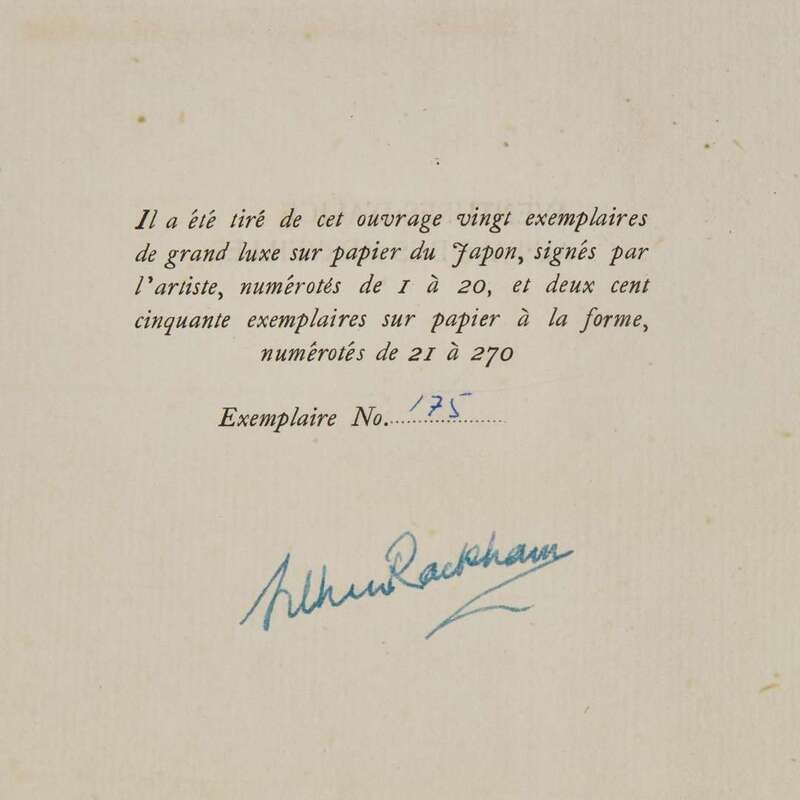 Il a été tiré de cet ouvrage vingt exemplaires
de grand luxe sur papier du Japon, signés par
l'artiste, numérotés de 1 à 20, et deux cent
cinquante exemplaires sur papier à la forme,
numérotés de 21 à 270
Exemplaire No. 175
Arthur Rackham